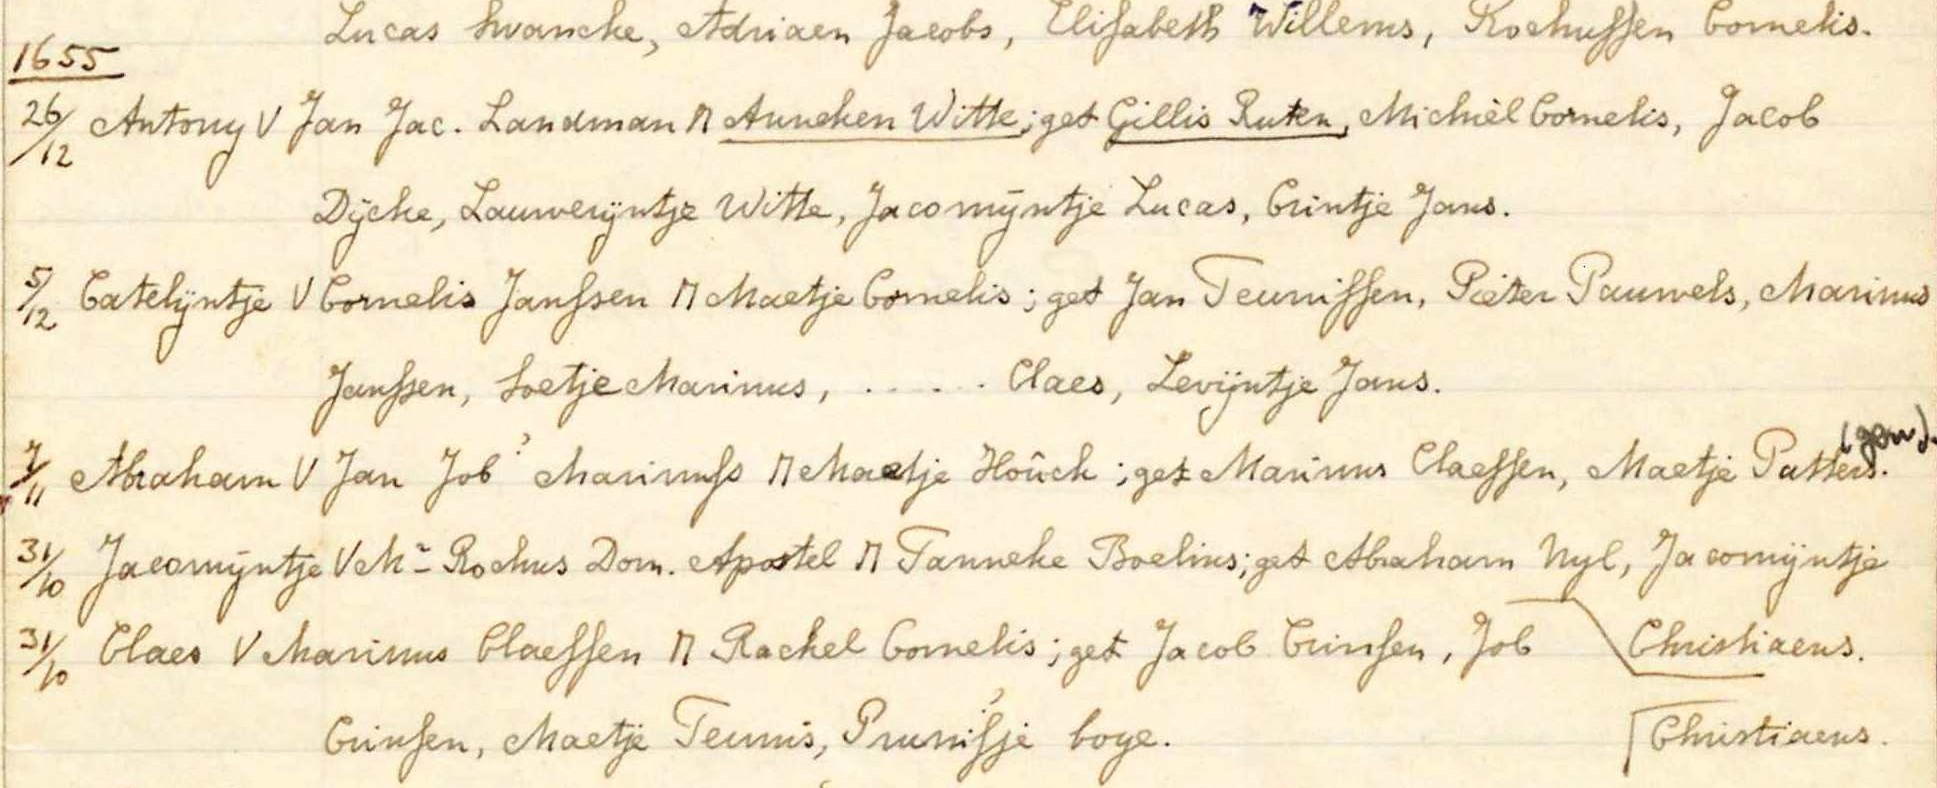 Lucas Svancke, Adriaen Jacobs, Elisabeth Willems, Rochussen Cornelis.
1655
26/12 Antony V Jan Jac. Landman M Anneken Witte; get Gillis Ruten, Michiel Cornelis, Jacob
Dijcke, Lauwerijntje Witte, Jacomijntje Lucas, Crintje Jans.
5/12 Catelijntje V Cornelis Janssen M Maetje Cornelis; get Jan Teunissen, Pieter Pauwels, Marinus
Janssen, Soetje Marinus, ..... Claes, Levijntje Jans.
(gom).
7/11 Abraham V Jan Job Marinuss M Maetje Hoûck; get Marinus Claessen, Maetje Patters.
31/10 Jacomijntje V Mr Rochus Dom. Apostel M Tanneke Boelins; get Abraham Nyl, Jacomijntje
Christiaens.
31/10 Claes V Marinus Claessen M Rachel Cornelis; get Jacob Crinsen, Job
Crinsen, Maetje Teunis, Prunisje boye.
Christiaens.